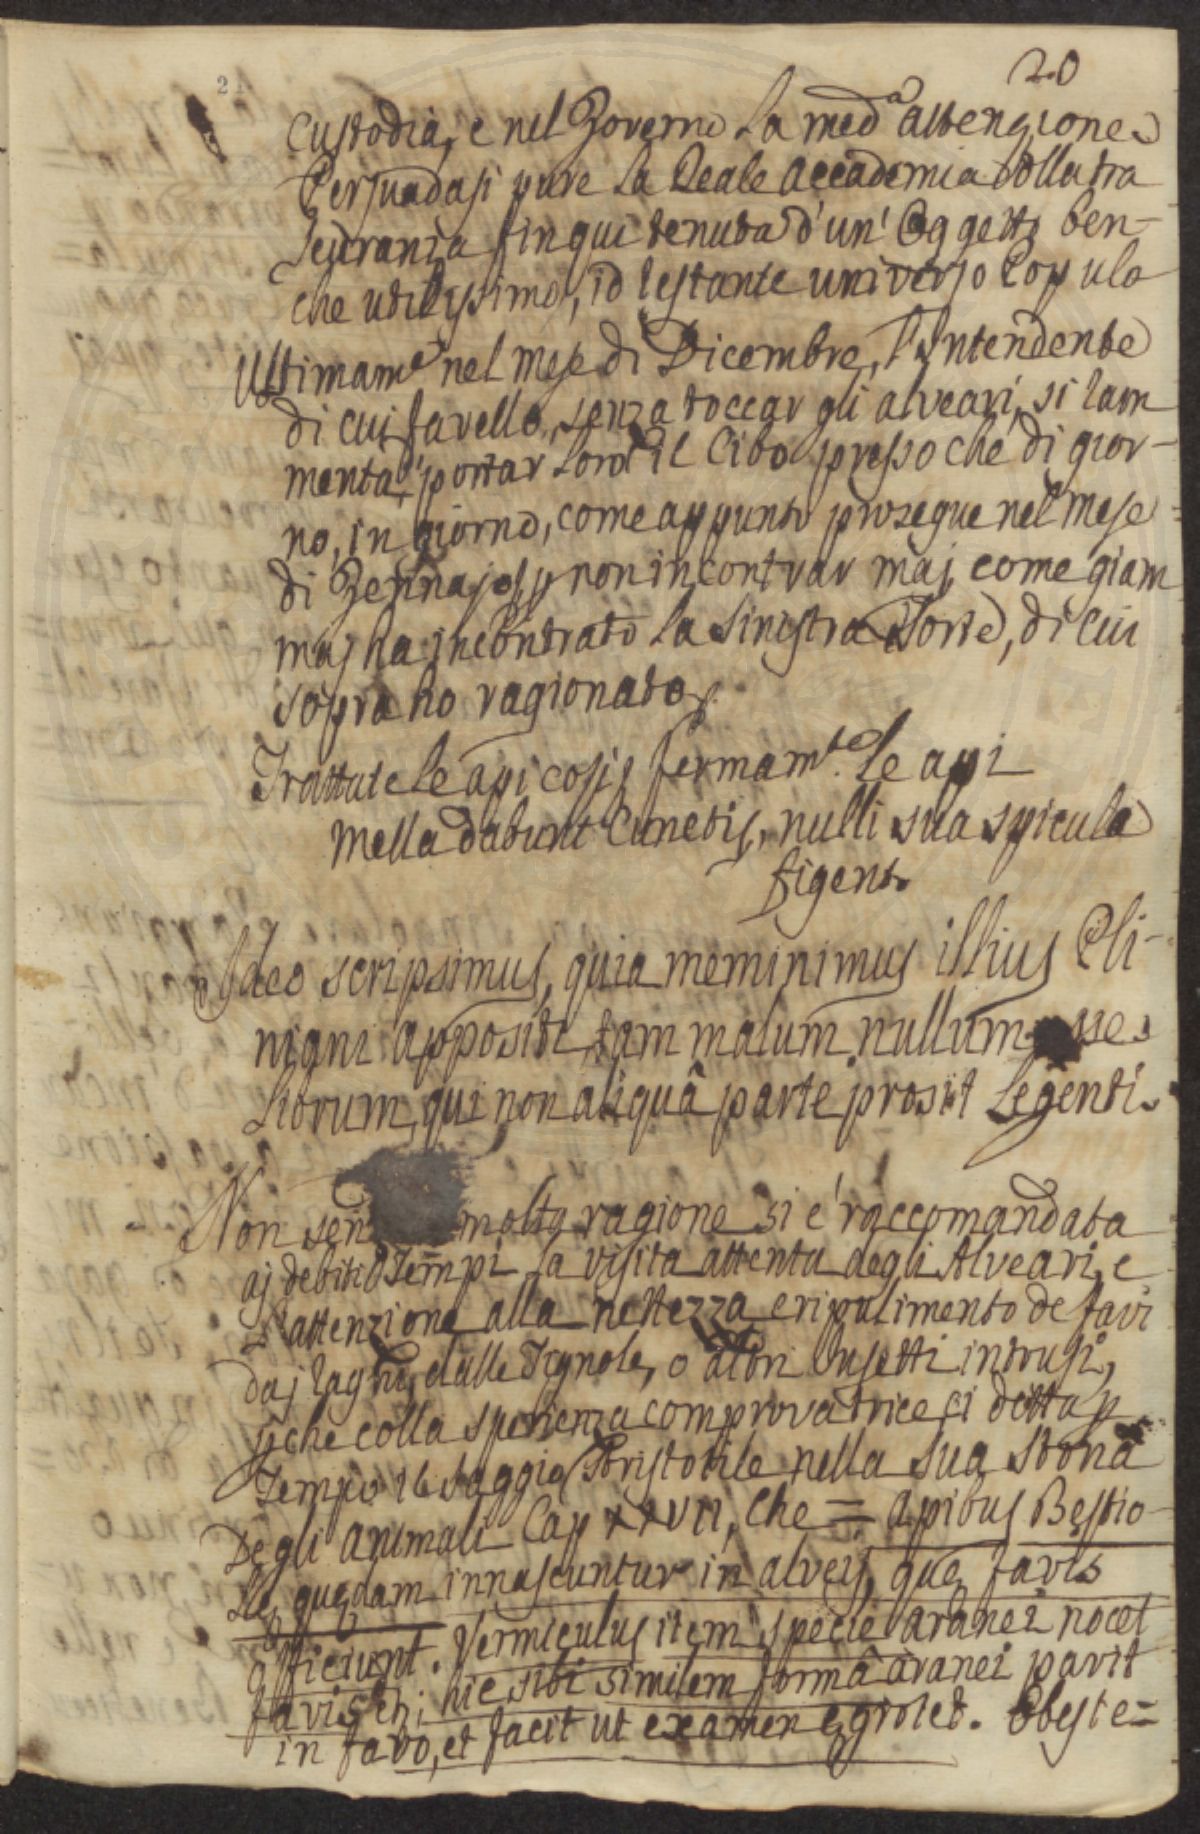 20
21
Custodia, e nel Governo la med.a attenzione
Persuadasi pure la Reale Accademia della tra
scuranza fin qui tenuta d'un' Oggetto ben-
che utilissimo, id restante universo Popolo
Ultimam.e nel mese di Dicembre, l'Intendente
di cui favello, senza toccar gli alveari, si ram
menta portar loro il Cibo presso che di gior-
no, in giorno, come appunto prosegue nel mese
di Gennajo, p non incontrar maj, come giam
maj ha incontrato la sinistra Sorte, di cui
sopra ho ragionato.
Trattate le api così, fermam.te le api
Mella dabunt Cunctis, nulli sua spicula
figent.
Adeo scripsimus, quia meminimus illius Pli-
niani appositi, tam malum nullum esse
librum, qui non aliquâ parte prosit legenti.
Non sen molta ragione si è raccomandata
aj debiti Tempi la visita attenta degli Alveari, e
l'attenzione alla nettezza e ripulimento de favi
daj ragni, dalle Tignole, o altri Insetti intrusi,
pche colla sperienza comprovatrice ci detta p
tempo il saggio Aristotile nella sua storia
Degli animali Cap XXVII, che = apibus Bestio-
le quedam innascuntur in alveis, que favis
officiunt. Vermiculus item specie aranei nocet
favis hic sibi similem formâ aranei parit
in favo, et facit ut examen egrotet. Obest e=